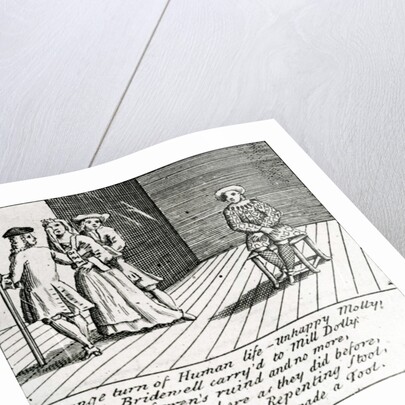 nge turn of Human life - unhappy Molly!
Bridewell carry'd to Mill Dolly.
en's ruind and no more,
re as they did before,
Repenting Stool,
ade a Fool.